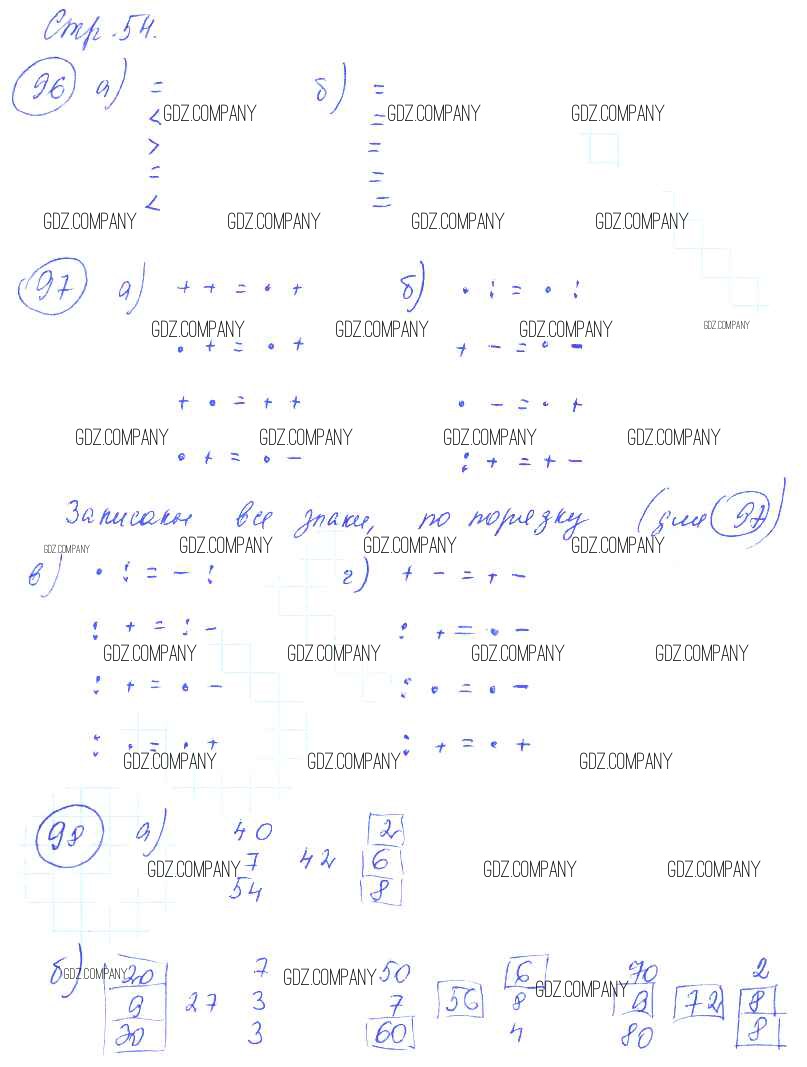 Стр. 54.
96 а) = б) =
< GDZ.COMPANY = GDZ.COMPANY GDZ.COMPANY
> =
= =
< =
GDZ.COMPANY GDZ.COMPANY GDZ.COMPANY GDZ.COMPANY
97 а) + + = · + б) · : = · :
GDZ.COMPANY GDZ.COMPANY GDZ.COMPANY GDZ.COMPANY
· + = · + + - = · -
+ · = + + · - = · +
GDZ.COMPANY GDZ.COMPANY GDZ.COMPANY GDZ.COMPANY
· + = · - : + = + -
Записаны все знаки, по порядку (для 97)
GDZ.COMPANY GDZ.COMPANY GDZ.COMPANY GDZ.COMPANY
в) · : = - : г) + - = + -
: + = : - : + = · -
GDZ.COMPANY GDZ.COMPANY GDZ.COMPANY GDZ.COMPANY
: + = · - : · = · -
: · = · + : + = · +
GDZ.COMPANY GDZ.COMPANY GDZ.COMPANY
98 а) 40 2
7 42 6
GDZ.COMPANY GDZ.COMPANY GDZ.COMPANY
54 8
б) GDZ.COMPANY 20 7 GDZ.COMPANY 50 6 70 2
9 27 3 7 56 8 GDZ.COMPANY 9 72 8
30 3 60 4 80 8